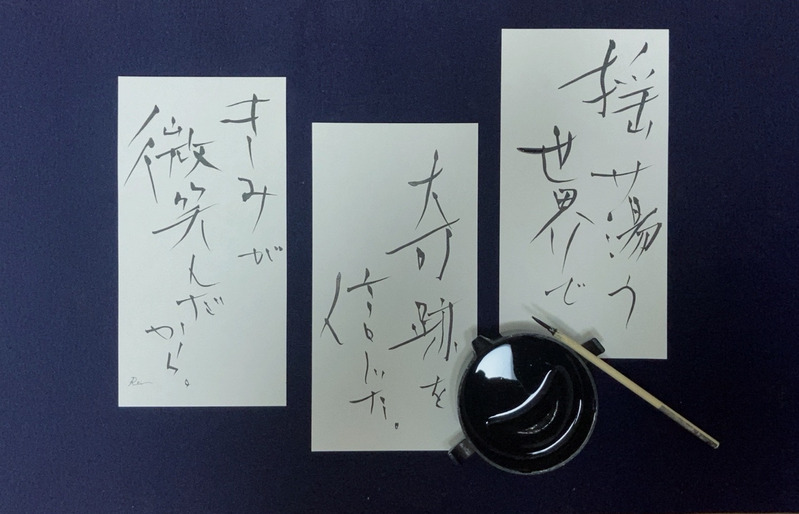 揺蕩う
世界で
奇跡を
信じた。
きみが
微笑んだ
から。
Ren